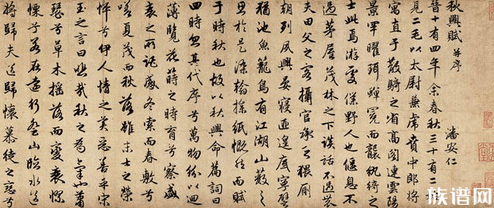 秋興賦 并序
潘安仁
晉十有四年余春秋三十有二始
見二毛以太尉掾兼虎賁中郎將
寓直于散騎之省高閣連雲陽
景罕曜珥蟬冕而襲紈綺之
士此焉游處僕野人也偃息不
過茅屋茂林之下談話不過農
夫田父之客攝官承乏猥廁
朝列夙興晏寢匪遑底寧譬
猶池魚籠鳥有江湖山藪之
思於是染翰操紙慨然而賦
于時秋也故以秋興命篇詞曰
四時忽其代序兮萬物紛以迴
薄覽花蒔之時育兮察盛
衰之所託感冬索而春敷兮
嗟夏茂而秋落雖末士之榮
悴兮伊人情之美惡善乎宋
玉之言曰悲哉秋之為氣也蕭
瑟兮草木搖落而變衰憭
慄兮若在遠行登山臨水送
將歸夫送歸懷慕徒之戀兮
族谱网